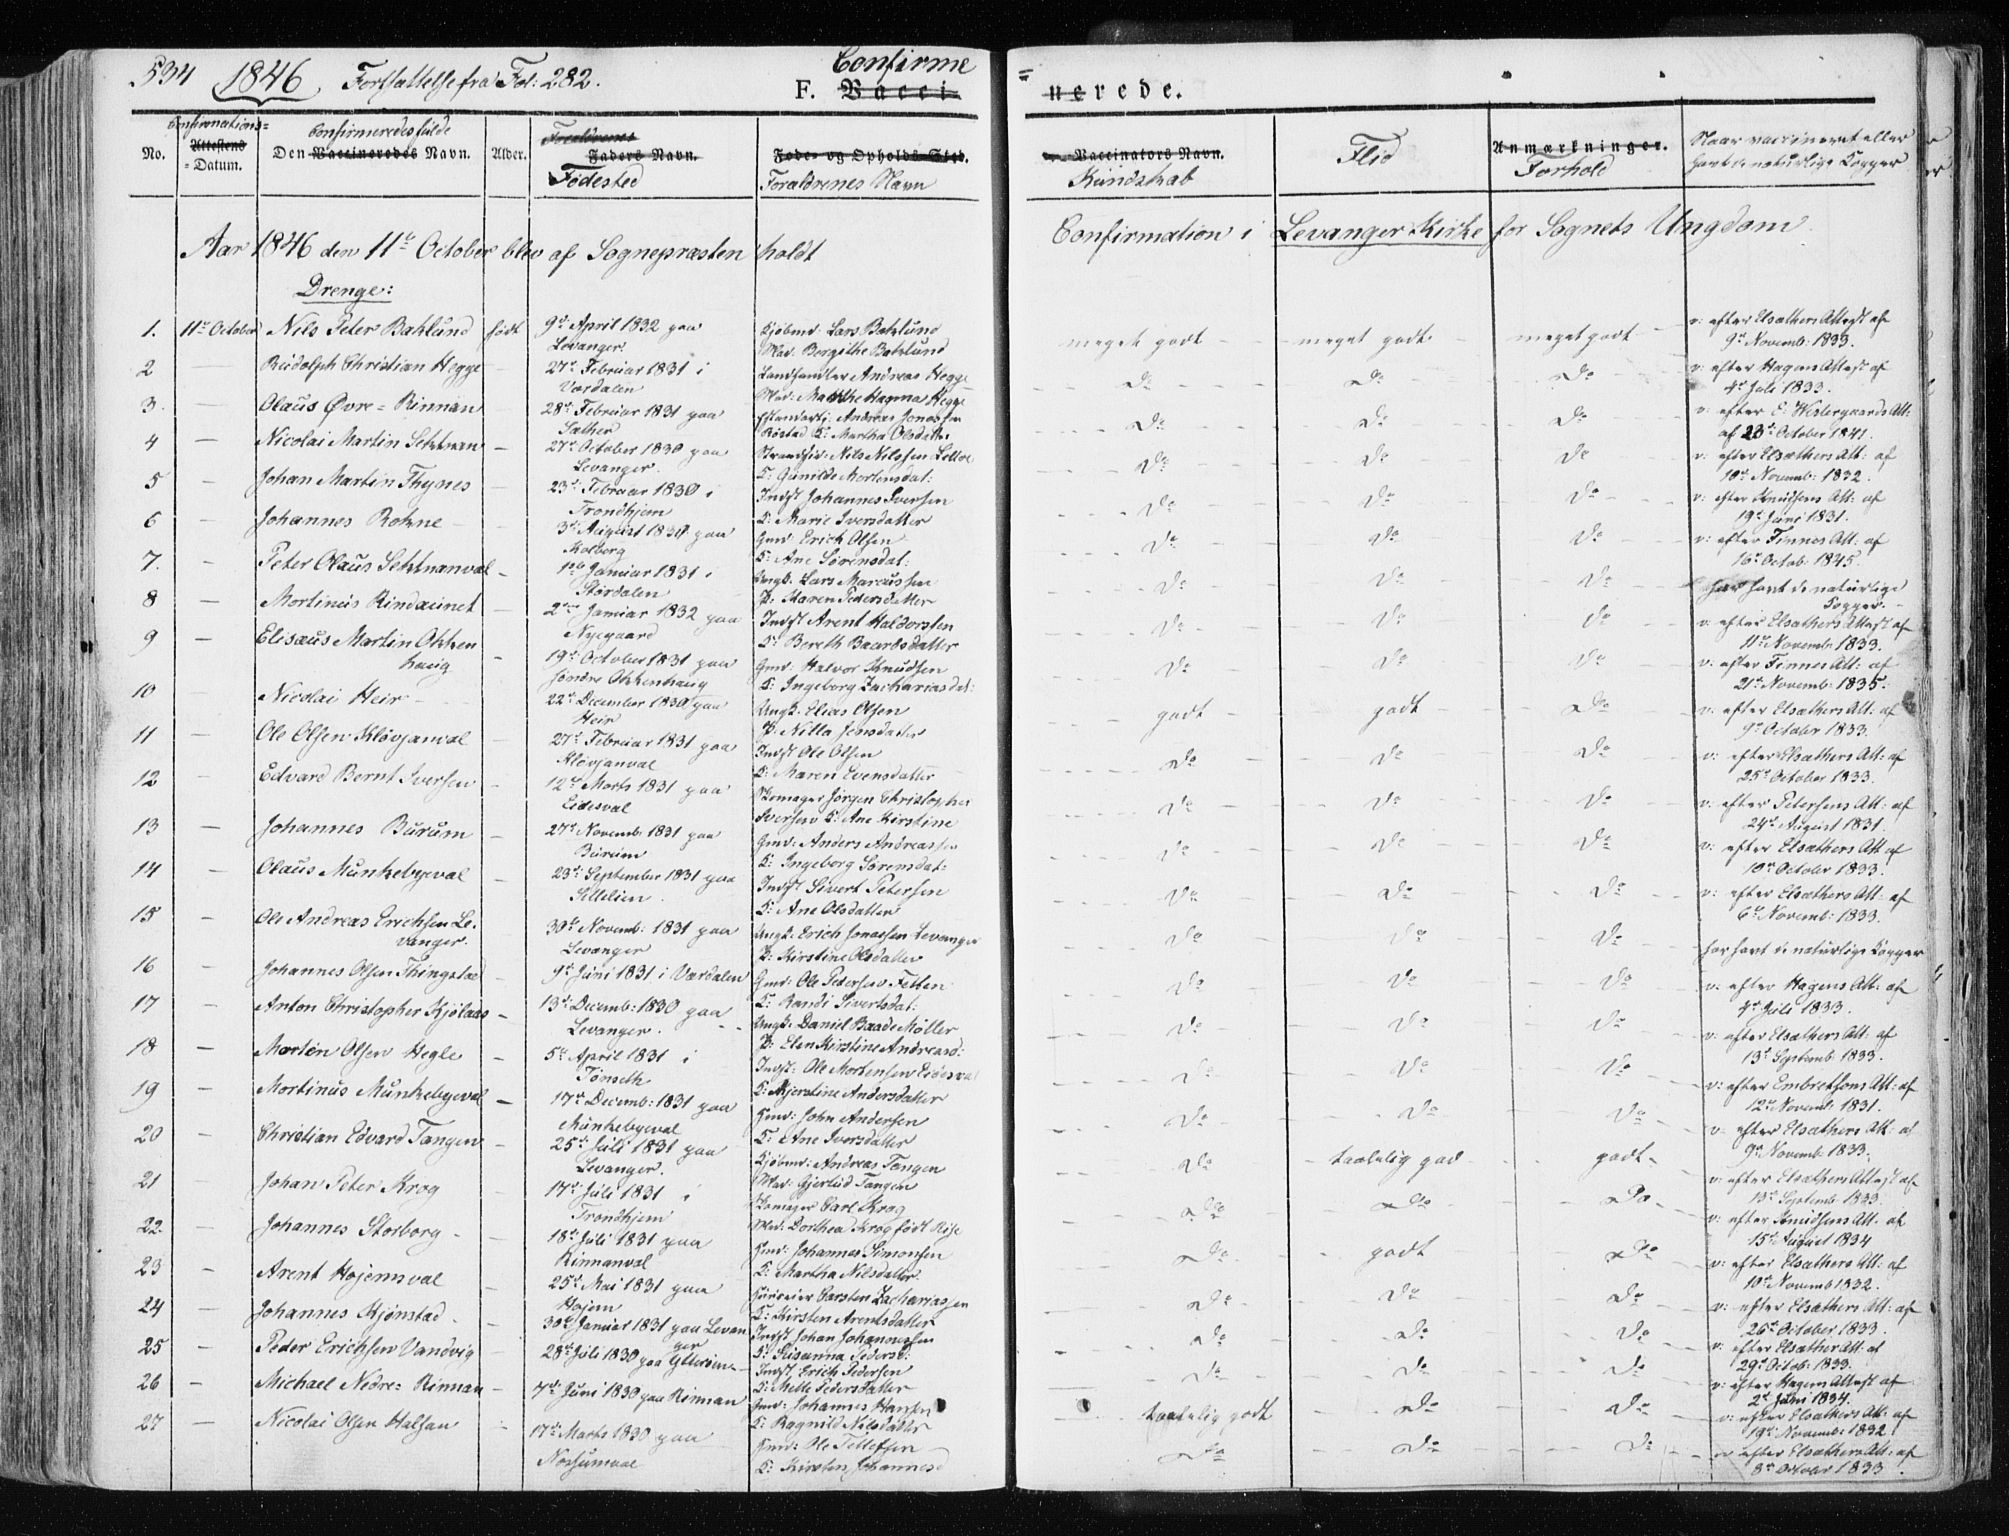 534 1846 Fortsættelse fra Fol: 282.
Confirme
F. Vacci-
=
nerede.
Confirmations=
No. Attestens =Datum.
Confirmeredes fulde
Den Vaccineredes Navn.
Alder.
Forældrenes
Faders Navn.
Fødested
Føde- og Opholds-Sted.
Forældrenes Navn
Vaccinators Navn.
Kundskab
Flid
Anmærkninger.
Forhold
Naar vaccineret eller
havt de naturlige Kopper
Aar 1846 den 11te October blev af Sognepræsten holdt Confirmation i Levanger Kirke for Sognets Ungdom.
Drenge:
1. 11te October Nils Peter Baklund født 9de April 1832 paa Levanger. Kjøbmd: Lars Baklund Mad: Bergithe Baklund meget godt meget godt meget godt v: efter Elsæthers Attest af 9de Novemb: 1833.
2 — Rudolph Christian Hegge 27de Februar 1831 i Værdalen Landhandler Andreas Hegge Mad: Marthe Hagma Hegge Do Do Do v: efter Hagens Attest af 4de Juli 1833.
3. — Olaus Øvre=Rinnan 28de Februar 1831 paa Sæther Andreas Jonassen Røstad K: Martha Olsdatter Do Do Do v: efter E: Westergaards Att: af 23de October 1841.
4 — Nicolai Martin Setnan 27de October 1830 paa Levanger. Strandsid: Nils Nilssen K: Gunilde Mortensdat: Do Do Do v: efter Elsæthers Att: af 10de Novemb: 1832.
5 — Johan Martin Thynes 23de Februar 1830 i Trondhjem Indst Johannes Iversen K: Marie Iversdatter Do Do Do v: efter Knudsens Att: af 19de Juni 1831.
6 — Johannes Rokne 3de August 1830 paa Kolberg Gmd: Erich Olsen K: Ane Sørensdat: Do Do Do v: efter Finnes Att: af 16de Octob: 1845.
7. — Peter Olaus Setnanval 1ste Januar 1831 i Størdalen Ungk. Lars Marcussen P: Karen Pedersdatter Do Do Do har havt de naturlige Kopper.
8 — Mortinus Rindæunet 2den Januar 1832 paa Nyegaard Indst Arent Haldorsten K: Bereth Baardsdatter Do Do Do v: efter Elsæthers Attest af 11te Novemb: 1833.
9 — Elisæus Martin Okkenhaug 19de October 1831 paa Søndre Okkenhaug Gmd: Halvor Knudsen K: Ingeborg Zachariasdat: Do Do Do v: efter Finnes Att: af 21de Novemb: 1835.
10 — Nicolai Heir 22de December 1830 paa Heir Ungk. Elias Olsen P: Nilla Jensdatter godt godt Do v: efter Elsæthers Att: af 9de October 1833.
11 — Ole Olsen Kløvjanval 27de Februar 1831 paa Kløvjanval Indst Ole Olsen K: Maren Evensdatter Do Do Do v: efter Elsæthers Att: af 25de October 1833.
12 — Edvard Bernt Iversen 12te Marts 1831 paa Eidesval Skomager Jørgen Christopher Iversen K: Ane Kirstine Do Do Do v: efter Petersens Att: af 24de August 1831.
13 — Johannes Burum 27de Novemb: 1831 paa Burum Gmd: Anders Andreassen K: Ingeborg Sørensdat: Do Do Do v: efter Elsæthers Att af 10de October 1833.
14 — Olaus Munkebyeval 23de September 1831 paa Indst Sivert Petersen K: Ane Olsdatter Do Do Do v: efter Elsæthers Att: af 6te Novemb: 1833.
15 — Ole Andreas Erichsen Levanger. 30te Novemb: 1831 paa Levanger Ungk. Erich Jonassen Levanger P: Kirstine Olsdatter Do Do Do har havt de naturlige Kopper
16 — Johannes Olsen Thingstad 9de Juni 1831 i Værdalen Gmd: Ole Pedersen K: Randi Sivertsdat: Do Do Do v: efter Hagens Att: af 4de Juli 1833.
17 — Anton Christopher Kjølaas 13de Decemb: 1830 paa Levanger. Ungk. Daniel Baade Møller P: Elen Kirstine Andreasd: Do Do Do v: efter Elsæthers Att: af 13de Septemb: 1833.
18 — Morten Olsen Hegle 5te April 1831 i Tønseth Indst: Ole Mortensen Eidesval K: Kjerstine Andersdatter Do Do Do v: efter Embretsons Att: af 12te Novemb: 1831.
19 — Mortinus Munkebyeval 17de Decemb: 1831 paa Munkebyeval John Andersen K: Ane Iversdatter Do Do Do v: efter Elsæthers Att: af 9de Novemb: 1833.
20 — Christian Edvard Tangen 25de Juli 1831 paa Levanger. Kjøbmd: Andreas Tangen Mad: Gjertrud Tangen Do taalelig god godt v: efter Elsæthers Attest af 13de Septemb: 1833.
21 Johan Peter Krog 17de Juli 1831 i Trondhjem Skomager Carl Krog Mad: Dorthea Krog født Do Do Do v: efter Knudsens Att: af 15de August 1834
22. — Johannes Storborg 18de Juli 1831 paa Rinnanval Johannes Simonsen K: Martha Nilsdatter. Do godt Do v: efter Elsæthers Att: af 10de Novemb 1832.
23 — Arent Hojemsval 25de Mai 1831 paa Hojem Carsten Zachariassen K: Kirsten Arentsdatter Do Do Do v: efter Elsæthers Att: af 26de October 1833.
24 — Johannes Kjønstad 30te Januar 1831 paa Levanger Indst Johan Johannessen K: Susanna Pedersd: Do Do Do v: efter Elsæther Att: af 29de Octob: 1833.
25 — Peder Erichsen Vandvig 28de Juli 1830 paa Indst, Erich Pedersen K: Mette Pedersdatter Do Do Do v: efter Hagens Attest af 2de Juni 1834.
26 — Michael Nedre=Rinnan 7de Juni 1830 paa Rinnan Gmd: Johannes Hansen K: Ragnild Nilsdatter taalelig godt Do Do v: efter Elsæthers Att: af 19de Novemb: 1832.
27 — Nicolai Olsen Halsan 17de Marts 1830 paa Ole K: Kirsten Johannesd Do Do Do v: efter Elsæthers Att: af 8de October 1833.